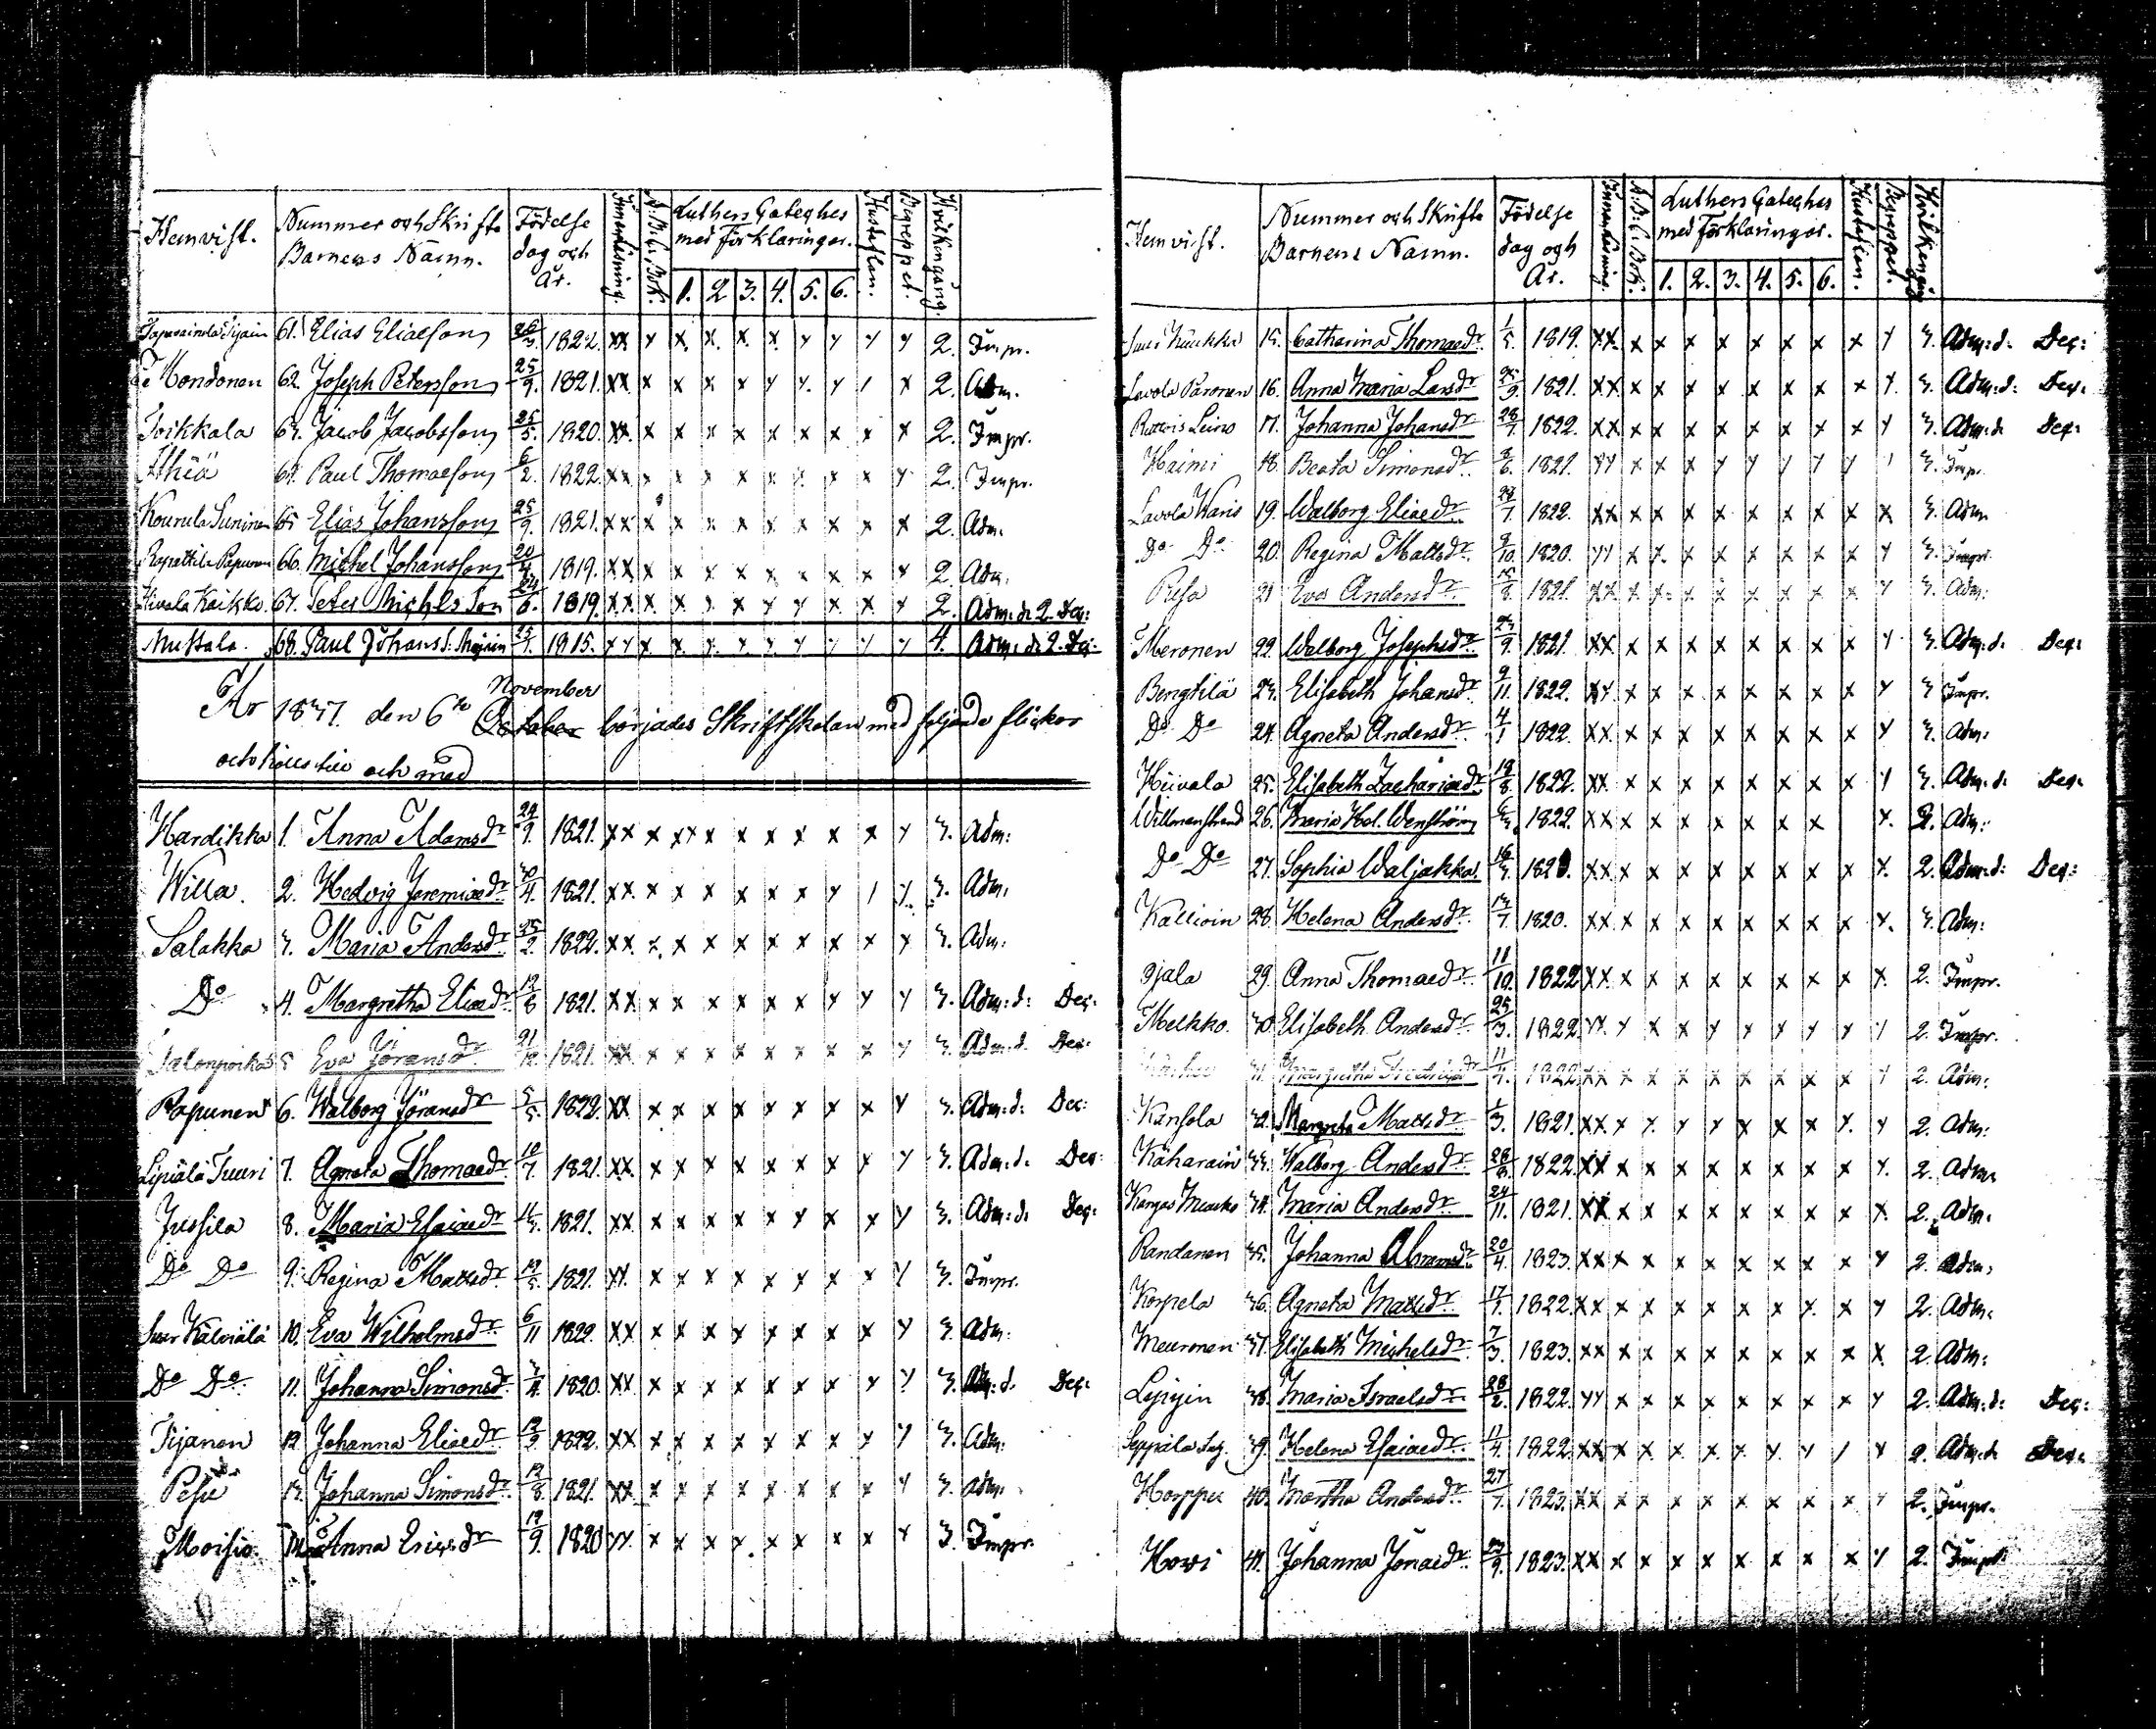 Hemvist. Nummer och Skrifte Barnens Namn. Födelse dag och År. Innanläsning. A.B.C. Bok. Luthers Cateches med Förklaringar. 1. 2. 3. 4. 5. 6. Hustaflan. Begreppet. Hvilkengång.
61. Elias Eliæson 1822. xx y x. x. x. x y y y y 2. Impr.
Mondonen 62. Joseph Petersson 25/9. 1821. xx x x x x y y. y / x 2. Adm.
Toikkala 63. Jacob Jacobsson 25/5. 1820. xx. x x x x x x x x x 2. Impr.
64. Paul Thomæson 6/2. 1822. xx x x x x x x x x y 2. Impr.
65. Elias Johansson 25/9. 1821. xx x x x x x x x x x 2. Adm.
66. Michel Johansson 1819. xx x x x x x x x x y 2. Adm.
67. Peter Michels Son 24/6. 1819. xx x x x x y y x x. y 2. Adm: d: 2 Dec:
Muttala. 68. Paul Johans S. 1815. x y x x. x. x. y. y y y y 4. Adm: d: 2. Dec:
År 1837. den 6te October November börjades Skriftskolan med följande flickor
och hölls till och med
Hardikka 1. Anna Adamsdr 24/9. 1821. xx x xx x x x x x x y 3. Adm:
Willa. 2. Hedvig Jeremiædr 30/4. 1821. xx. x x x x x x y / y. 3. Adm.
Salakka 3. Maria Andersdr 25/2. 1822. xx. x. x x x x x x x y 3. Adm:
Do 4. Margretha Eliædr 12/8 1821. xx x x x x x x y y y 3. Adm: d: Dec:
5 Eva Jöransdr 21/12. 1821. xx x x x x x x x x y 3. Adm: d. Dec:
Papunen 6. Walborg Jöransdr 5/5. 1822. xx x x x x x x x x y 3. Adm: d: Dec:
7. Agneta Thomædr 10/7. 1821. xx. x x x x x x x x y 3. Adm: d. Dec:
Jussila 8. Maria Esaiædr 1821. xx x x x x x y x x y 3. Adm: d. Dec:
Do Do 9. Regina Mattsdr 1821. xx. x x x x x x x x y 3. Impr.
Suur Kälviälä 10. Eva Wilhelmsdr 6/11 1822. xx x x x x x x x x y 3. Adm:
Do Do 11. Johanna Simonsdr 3/4. 1820. xx x x x x x x x x y 3. Adm: d. Dec:
Tijanen 12. Johanna Eliædr 1822. xx x x x x x x x x y 3. Adm:
Pesu 13. Johanna Simonsdr 12/8. 1821. xx x x x x x x x x y 3. Adm.
Moisio. 14. Anna Ericsdr 19/9. 1820 yy. x x x x. x x x x y 3. Impr.
Hemvist. Nummer och Skrifte Barnens Namn. Födelse dag och År. Innanläsning. A.B.C. Bok. Luthers Cateches med Förklaringar. 1. 2. 3. 4. 5. 6. Hustaflan. Begreppet. Hvilkengång
15. Catharina Thomædr 1/5. 1819. xx. x x x x x x x x y 3. Adm: d. Dec:
16. Anna Maria Larsdr 25/9. 1821. xx x x x x x x x x y. 3. Adm: d: Dec:
17. Johanna Johansdr 28/7 1822. xx x x x x x x x x y 3. Adm: d. Dec:
Haimi 18. Beata Simonsdr 1821. yy x x x y y y y y 3. Impr.
Lavola Karis 19. Walborg Eliædr 1822. xx x x x x x x x x x 3. Adm
Do Do 20. Regina Mattsdr 9/10. 1820. yy x x. x x x x x x y 3. Impr.
Pesa 21 Eva Andersdr 1821. xx x x. x x x x x x y 3. Adm:
Meronen 22. Walborg Josephsdr 1821. xx x x x x x x x x y 3. Adm: d. Dec:
Bengtilä 23. Elisabeth Johansdr 9/11. 1822. xy. x x x x x x x x y 3 Impr.
Do Do 24. Agneta Andersdr 4/1 1822. xx. x x x x x x x x y 3. Adm:
Hiivala 25. Elisabeth Zachariædr 19/8. 1822. xx x x x x x x x x y 3. Adm: d. Dec:
Willmanstrand 26. Maria Hel. Wenström 1822. xx x x x x x x x x. 2. Adm:
Do Do 27. Sophia Waljakka 16/3. 1820. xx x x x x x x x x x. 2. Adm: d: Dec:
28. Helena Andersdr 13/7 1820. xx x x x x x x x x x. 3. Adm:
29. Anna Thomædr 11/10. 1822 xx x x x x x x x x x. 2. Impr.
Melkko. 30. Elisabeth Andersdr 25/3. 1822 yy. y x x y y y y y y 2. Impr.
31. Margretha Fredricsdr 11/4. 1822 xx x x x x x x x x y 2. Adm:
Kansola 32. Margreta Mattsdr 1/3. 1821. xx x y. y y x x x y. y 2. Adm:
33. Walborg Andersdr 1822. xx x x x x x x x x y. 2. Adm.
34. Maria Andersdr 24/11. 1821. xx x x x x x x x x x. 2. Adm.
Randanen 35. Johanna Abramsdr 20/4. 1823. xx x x x x x x x x y 2. Adm:
Korpela 36. Agneta Mattsdr 17/7. 1822. xx x x x x x x x. x y 2. Adm.
Meuronen 37. Elisabeth Michelsdr 7/3. 1823. xx x x x x x x x x x. 2. Adm:
38. Maria Israelsdr 28/2. 1822. yy x x x x x x x x y 2. Adm: d: Dec:
39. Helena Esaiædr 11/4 1822. xx. x x x x x. y y / y 2. Adm: d. Dec:
Horppu 40. Martha Andersdr 27/7. 1823. xx x x x x x x x x y 2. Impr.
Howi 41. Johanna Jonædr 1823. xx x x x x x x x x y 2. Impr.